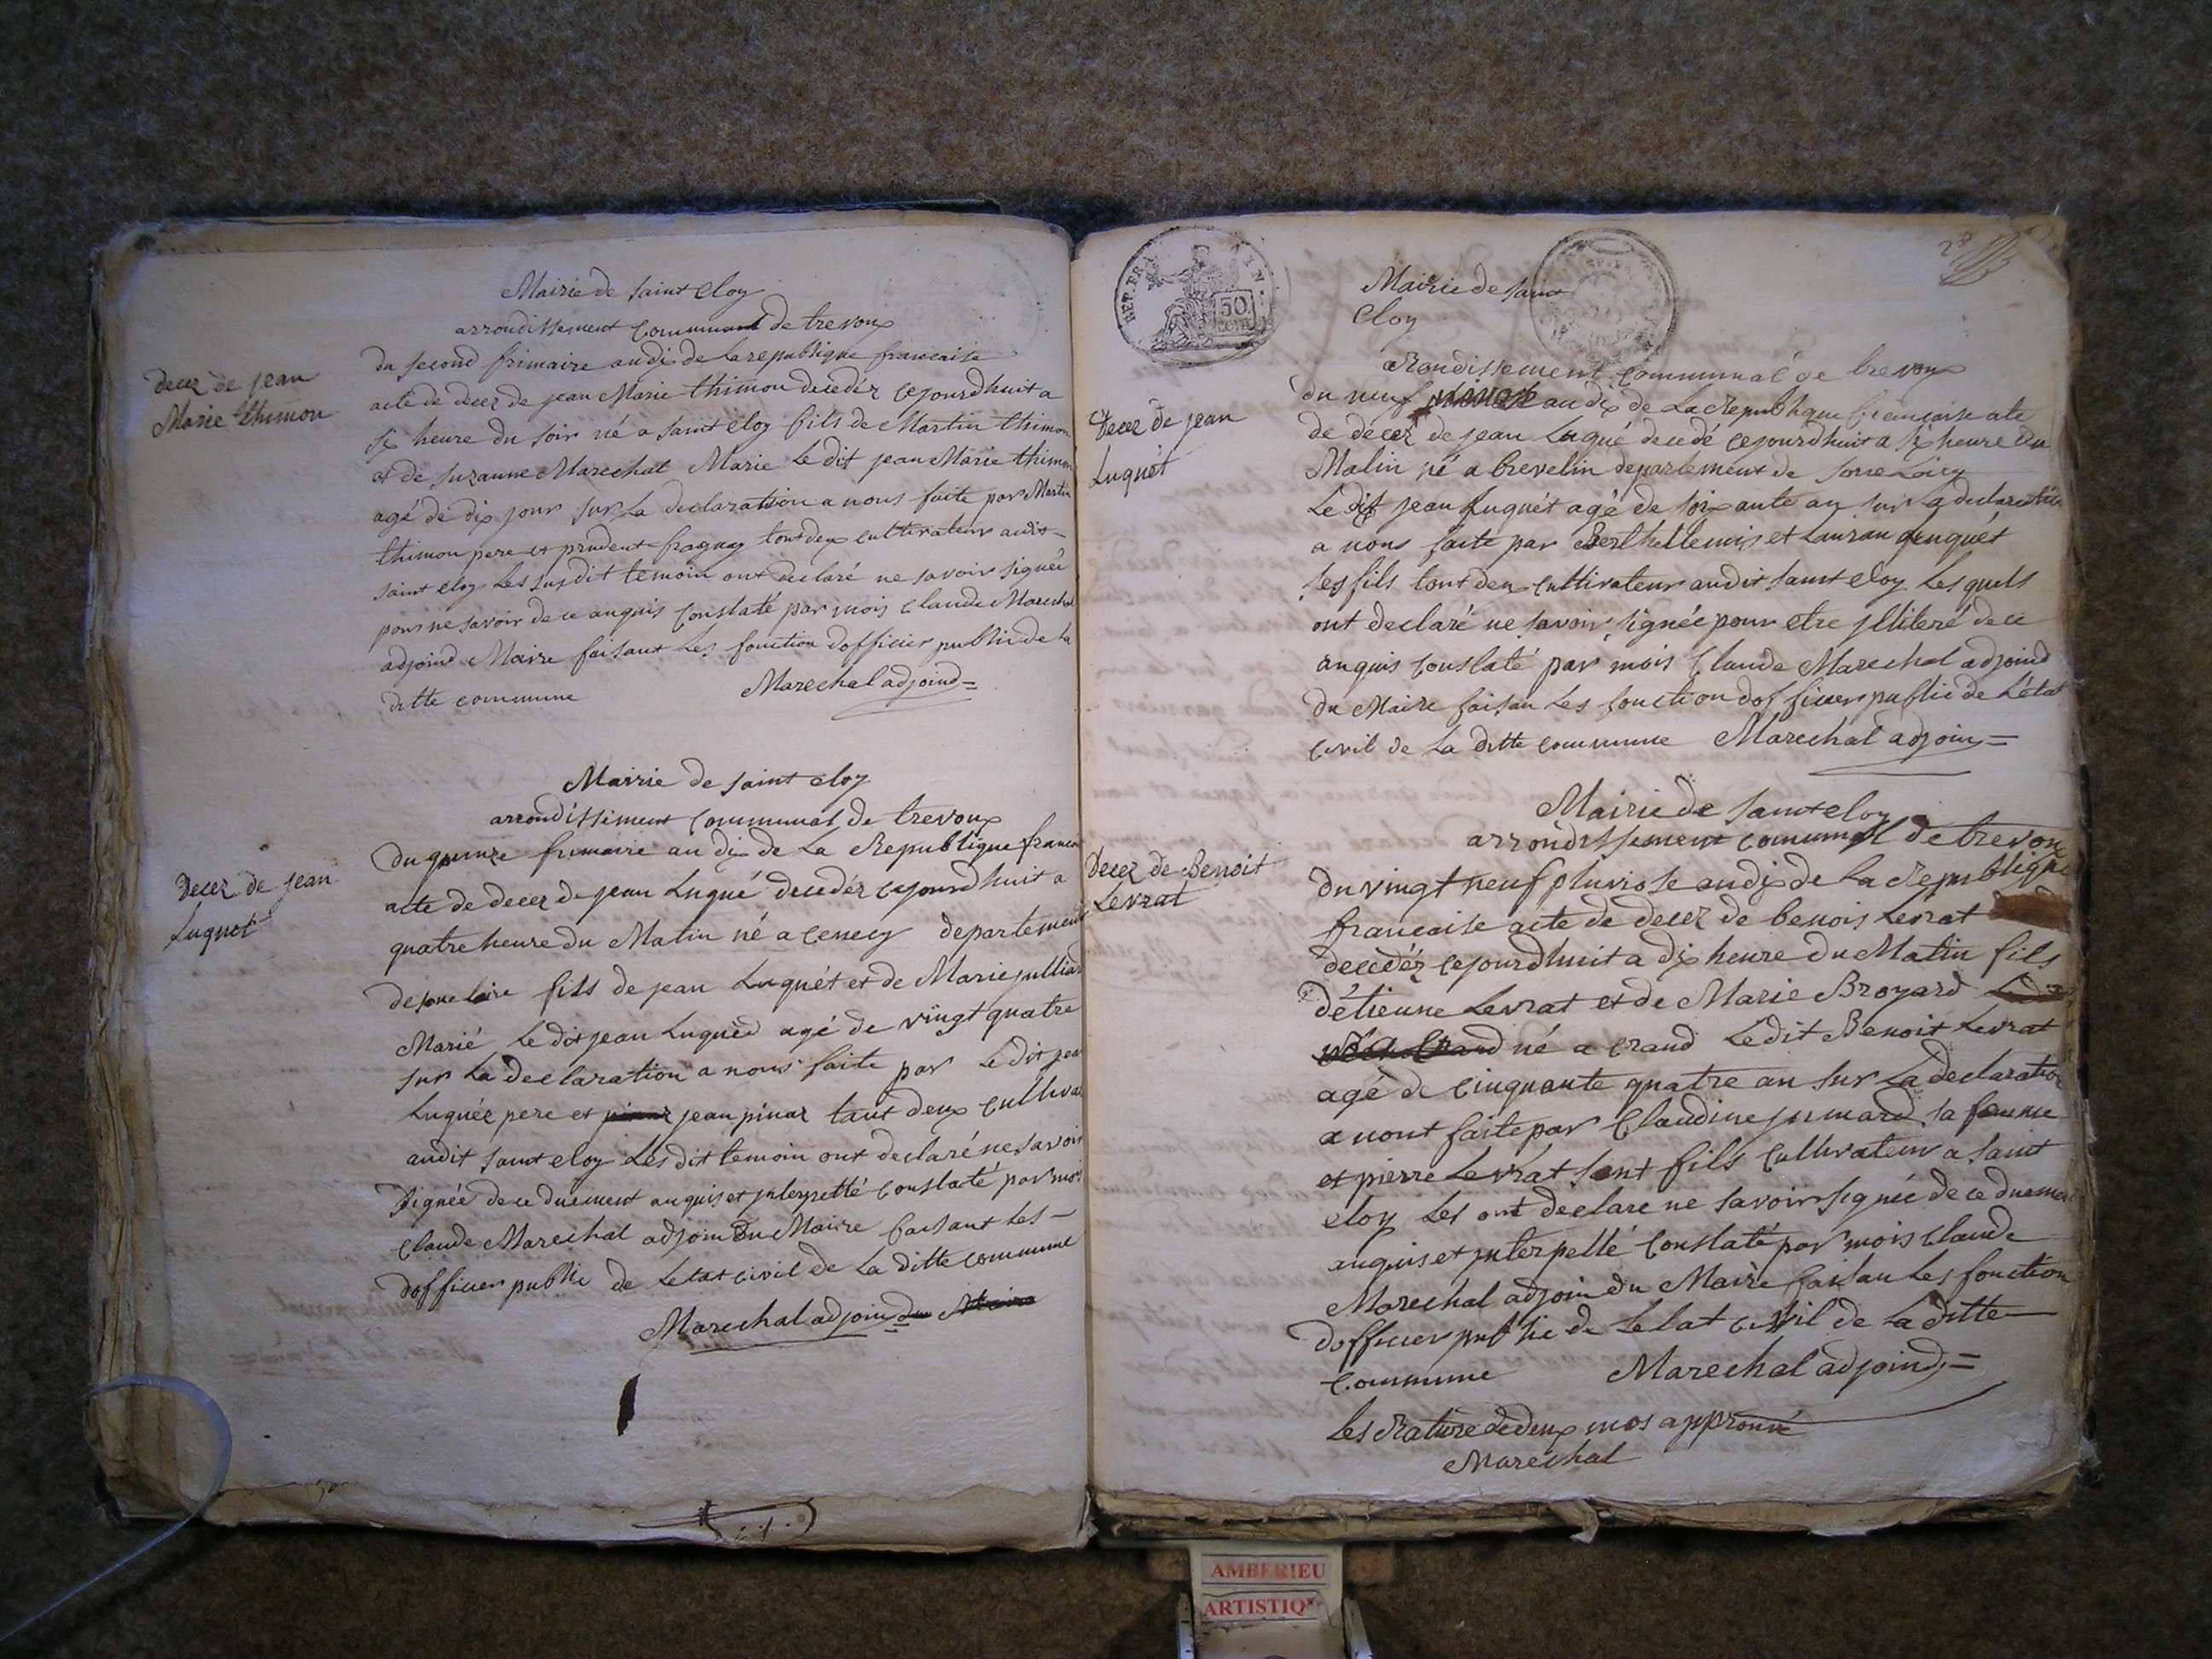 Mairie de saint eloy
arrondissement communal de trevoux
decez de jean
Marie thimon
du second frimaire an dix de la republique francaise
acte de decez de jean Marie thimon decedéz cejourdhuit a
six heure du soir né a saint eloy fils de Martin thimon
et de suzanne Marechal Marie Le dit jean Marie thimon
agé de dix jour sur La declaration a nous faite par Martin
thimon pere et prudent fragnay tout deux cultivateur audit
saint eloy Les susdit temoin ont declaré ne savoir signée
pour ne savoir de ce anquis constaté par mois claude Marechal
adjoind Maire faisant Les fonction dofficier public de La
ditte commune Marechal adjoind =
Mairie de saint eloy
arrondissement communal de trevoux
Decez de jean
Luquet
Du quinze frimaire an dix de La Republique francai
acte de decez de jean Luqué decedéz cejourdhuit a
quatre heure du Matin né a cenecy departement
de sone loire fils de jean Luquét et de Marie julliar
Marié Le dit jean Luquéd agé de vingt quatre
sur La declaration a nous faite par Le dit jean
Luquée pere et pinar jean pinar tout deux cultivat
audit saint eloy Les dit temoin ont declaré ne savoir
Signée de ce duement anquis et jnterpellé constaté par moi
Claude Marechal adjoin du Maire faisant Les
dofficier public de Letat civil de La ditte commune
Marechal adjoin du Maire
REP. FRA
50
CENT.
Mairie de saint
Eloy
arondissement communal de trevoux
Decez de jean
Luquét
du neuf nivose an dix de La Republique francaise acte
de décez de jean Luqué decedé cejourdhuit a six heure du
Matin né a brevelin departement de sone Loiry
Le dit jean Luquét agé de soixante an sur La declaration
a nous faite par Berthellemis et Lauran Luquét
ses fils tout deux cultivateur audit saint eloy Lesquels
ont declaré ne savoir signée pour etre jlliteré de ce
anquis constaté par mois Claude Marechal adjoind
du Maire faisan Les fonction dofficier public de Létat
civil de La ditte commune Marechal adjoin =
Mairie de saint eloy
arrondissement communal de trevoux
Decez de Benoit
Levrat
Du vingt neuf pluviose an dix de La Republique
francaise acte de decez de benois Levrat
decedéz cejourdhuit a dix heure du Matin fils
détienne Levrat et de Marie Broyard
né a crand Ledit Benoit Levrat
agé de Cinquante quatre an sur La declaration
a nout faite par Claudine jumard sa famme
et pierre Levrat sont fils cultivateur a saint
eloy Les ont declare ne savoir signée de ce duement
anquis et jnterpellé constaté par mois claude
Marechal adjoin du Maire faisan Les fonction
dofficier public de Letat civil de La ditte
Commune Marechal adjoind =
Les Rature de deux mos approuvé
Marechal
AMBERIEU
ARTISTIQ